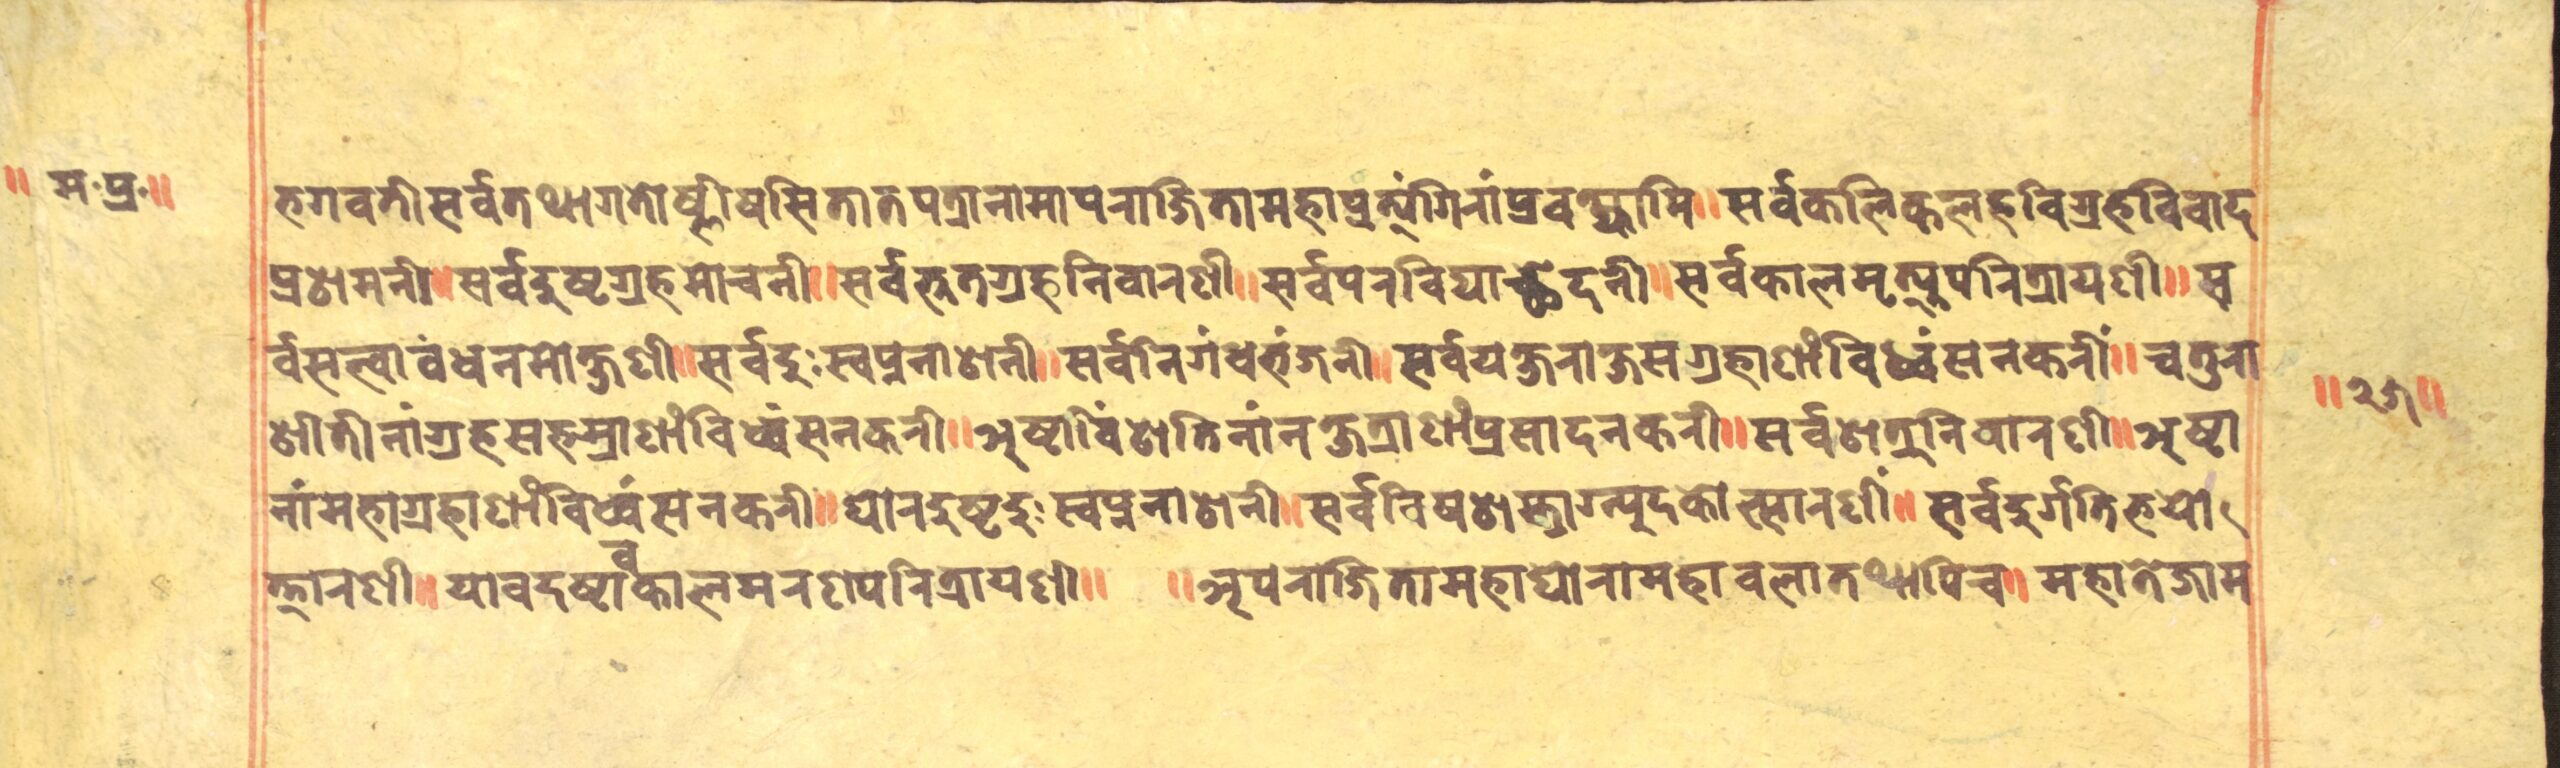 ॥ म॰ प्र॰ ॥
भगवतीसर्वतथागतोष्णीषसितातपत्रानामापराजितामहाप्रत्यंगिरांप्रवक्ष्यामि॥ सर्वकलिकलहविग्रहविवाद
प्रशमनी॥ सर्वदुष्टग्रहमोचनी॥ सर्वभुतग्रहनिवारणी॥ सर्वपरविद्याच्छेदनी॥ सर्वकालमृत्युपरित्रायणी॥ स
र्वसत्वावंधनमोक्षणी॥ सर्वदुःस्वप्ननाशनी॥ सर्वनिगंधभंजनी॥ सर्वयक्षराक्षसग्रहाणांविध्वंसनकरीं॥ चतुरा
शीतीनांग्रहसहस्राणांविध्वंसनकरी॥ अष्टाविंशतिनांनक्षत्राणांप्रसादनकरी॥ सर्वशत्रुनिवारणी॥ अष्टा
नांमहाग्रहाणांविध्वंसनकरी॥ घोरदुष्टदुःस्वप्ननाशनी॥ सर्वविषशस्त्राग्न्युदकोत्सारणीं॥ सर्वदुर्गतिभयोऽ
त्तारणी॥ यावदष्टावकालमरणपरित्रायणी॥ ॥ अपराजितामहाघोरामहावलातथापिच॥ महातेजाम
॥ २७ ॥